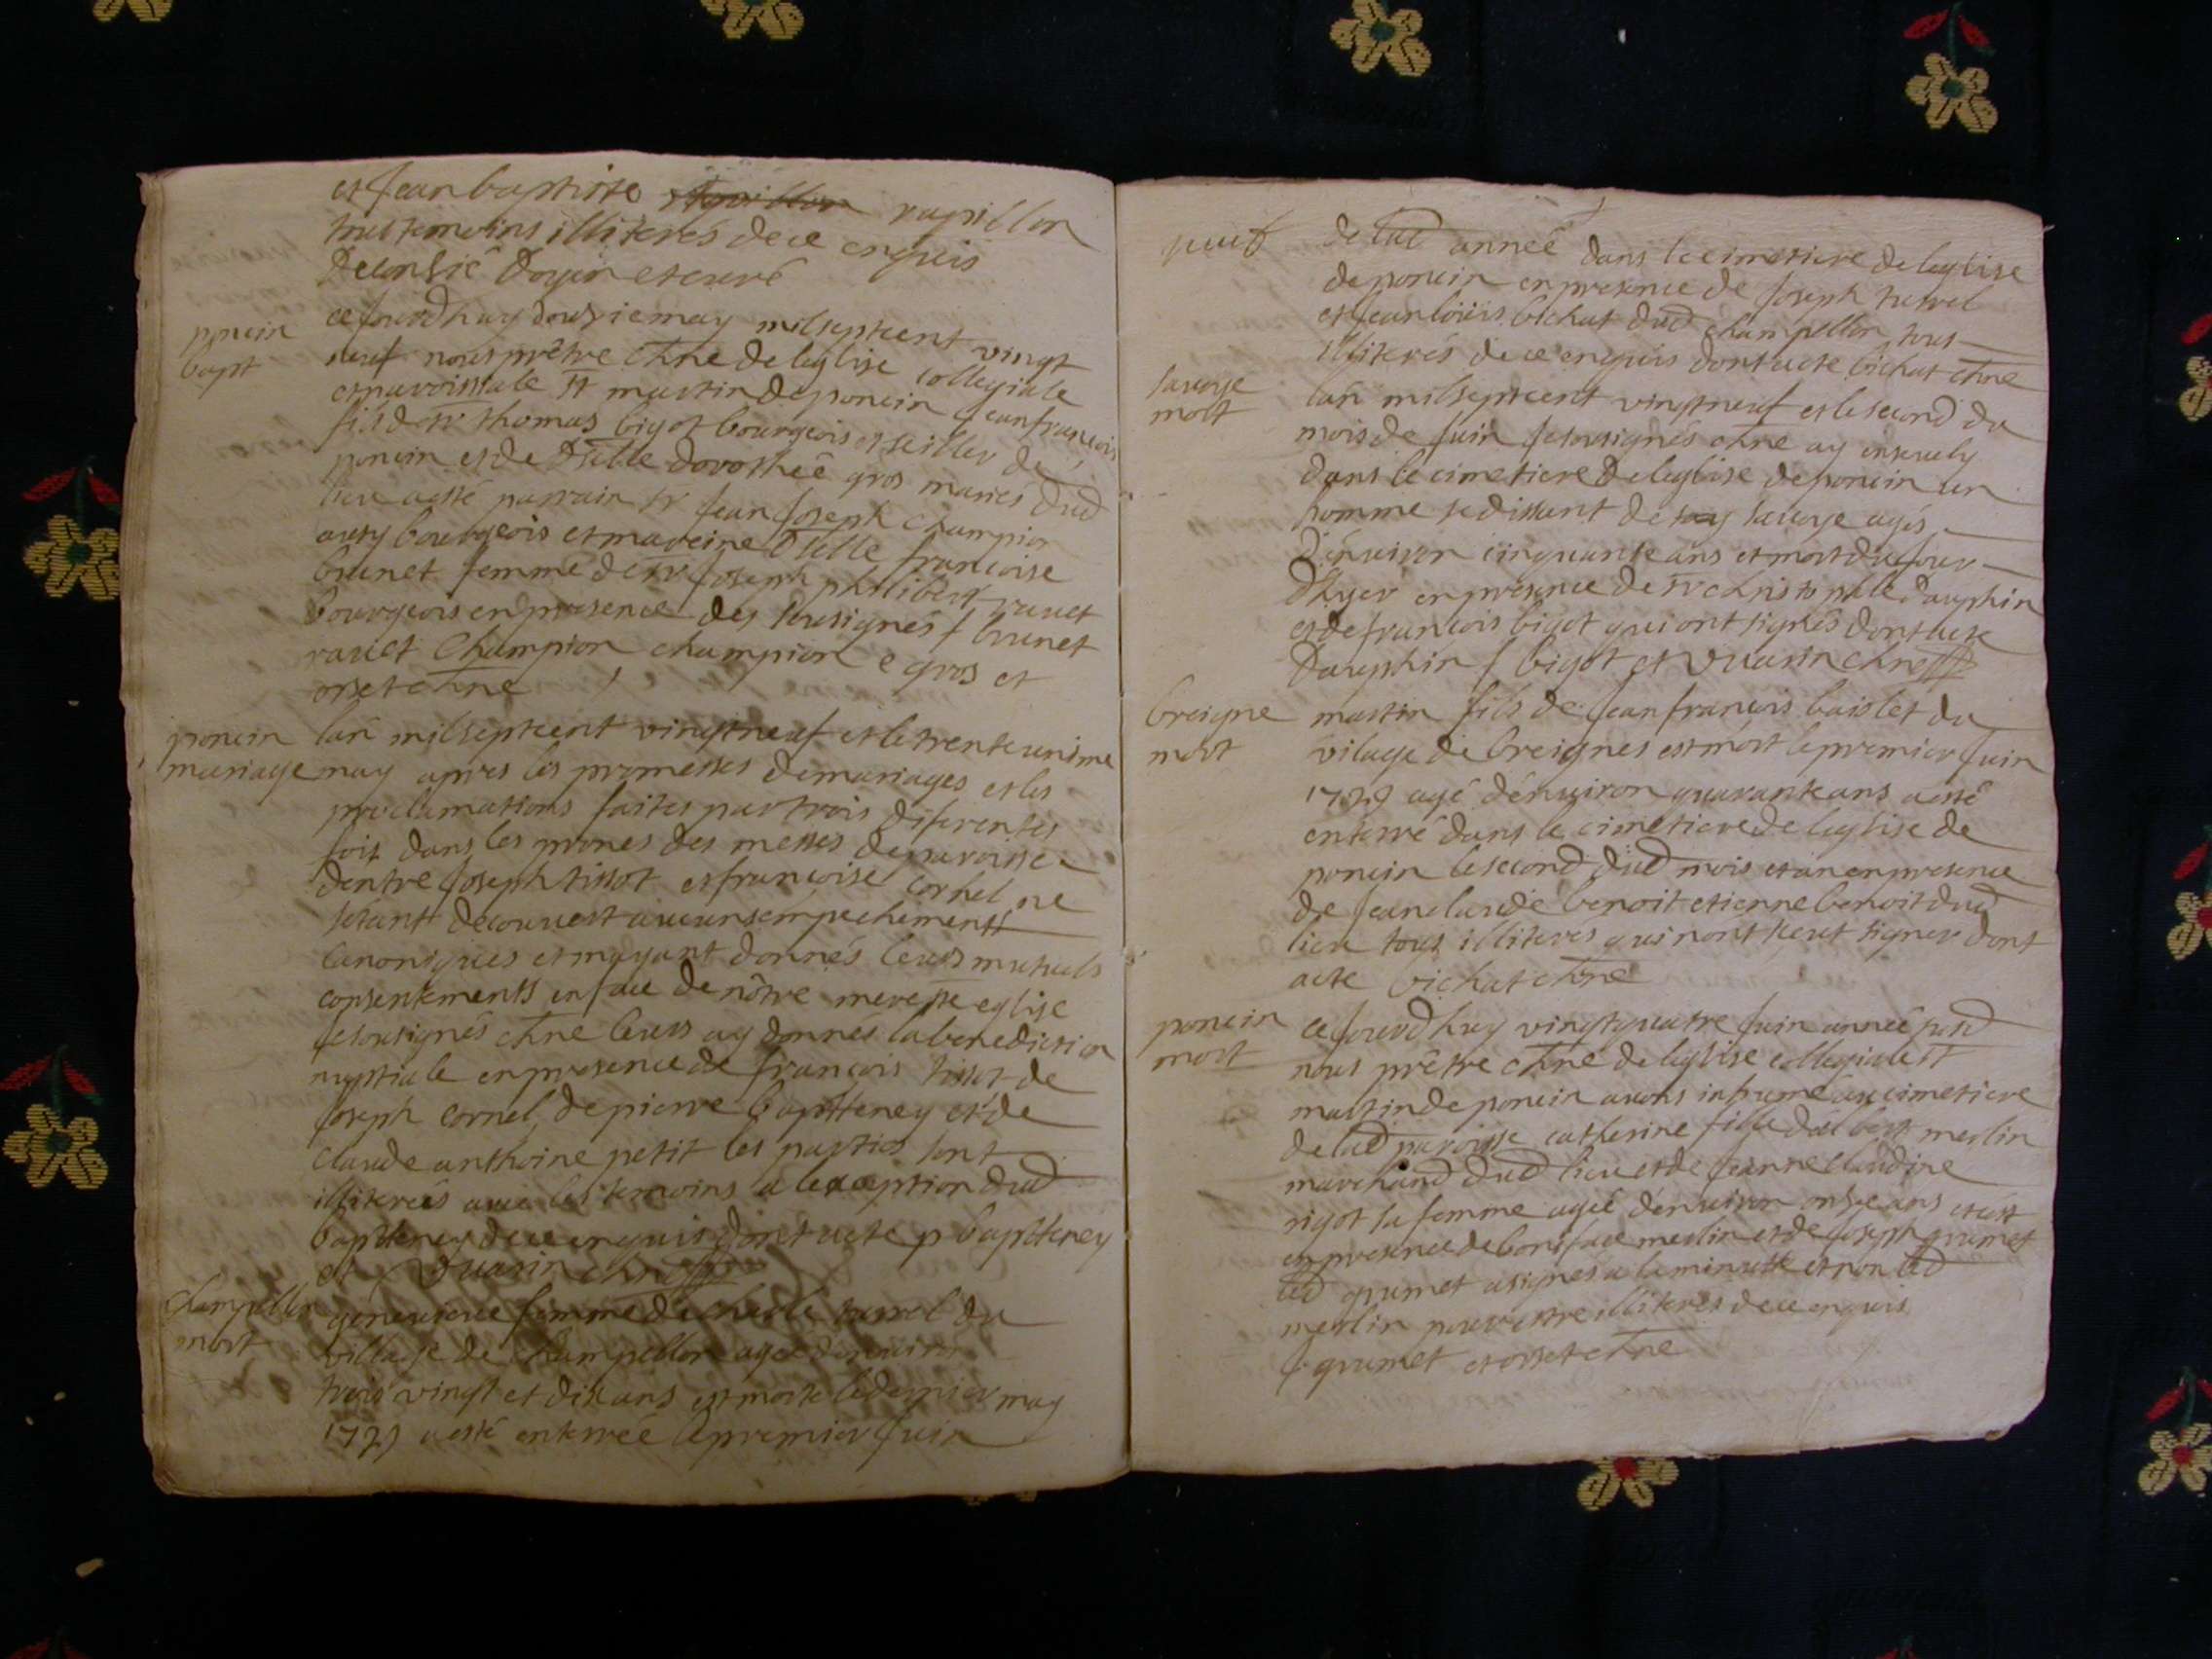 et Jean baptiste rapillon
tous temoins illiterés de ce enquis
Decorsié Doyin et curé
poncin
bapt
ce Jourdhuy douzie may mil sept cent vingt
neuf nous prêtre chne de leglise collegiale
et paroissiale st martin de poncin Jean francois
fils de sr thomas bigot bourgeois de
poncin et de Dlle dorothée gros mariés dud
lieu a esté parrain sr Jean Joseph champion
aussy bourgeois et mareine Dlle francoise
brunet femme de sr Joseph philibert ravet
bourgeois en presence des sousignés f brunet
ravet Champion champion e gros et
orset chne
poncin
mariage
lan mil sept cent vingt neuf et le trente unime
may apres les promesses de mariages et les
proclamations faites par trois diferentes
fois dans les prones des messes de paroisse
dentre Joseph tissot et francoise cornel ne
sétant decouvert aucuns émpechements
canoniques et mayant donnés leurs mutuels
consentements en face de nôtre mere ste eglise
Je sousignés chne leurs ay donnés la benediction
nuptiale en presence de francois tissot de
Joseph cornel, de pierre baptteney et de
claude anthoine petit les parties sont
illiterés avec les temoins a lexception dud
baptteney de ce enquis dont acte p baptteney
et vuarin chne
champellon
mort
génevieve femme de turrel du
village de champellon agée denviron
trois vingt et dix ans est morte le dernier may
1729 a esté enterrée le premier Juin
de lad année dans le cimetiere de leglise
de poncin en presence de Joseph turrel
et Jean loüis bichat dud champellon tous
illiterés de ce enquis dont acte bichat chne
savoye
mort
lan mil sept cent vingt neuf et le second du
mois de Juin Je sousignés chne ay ensevely
dans le cimetiere de leglise de poncin un
homme se dissant de savoye agés
dénviron cinquante ans et mort du Jour
dhyer en présence de sr christophle dauphin
et de francois bigot qui ont signés dont acte
Dauphin f bigot et vuarin chne
breigne
mort
martin fils de Jean francois baislet du
vilage de breignes est mort le premier Juin
1729 agé dénviron quarante ans a esté
enterré dans le cimetiere de leglise de
poncin le second dud mois et an en presence
de Jean claude benoit etienne benoit dud
lieu tous illiteres qui nont sceut signer dont
acte bichat chne
poncin
mort
ce Jourdhuy vingt quatre Juin année susd
nous prêtre chne de leglise collegiale st
martin de poncin avons inhumé au cimetiere
de lad paroisse catherine fille dalbert merlin
marchand dud lieu et de Jeanne claudine
rigot sa femme agée dénviron onze ans et cest
en presence de boniface merlin et de Joseph grumet
led grumet a signés a la minutte et non led
merlin pour estre illiterés de ce enquis
J grumet et orset chne